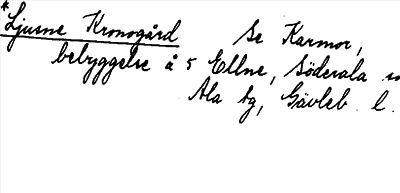 *Ljusne Kronogård Se Karmor,
bebyggelse å 5 Ellne, Söderala
Ala tg, Gävleb. l.